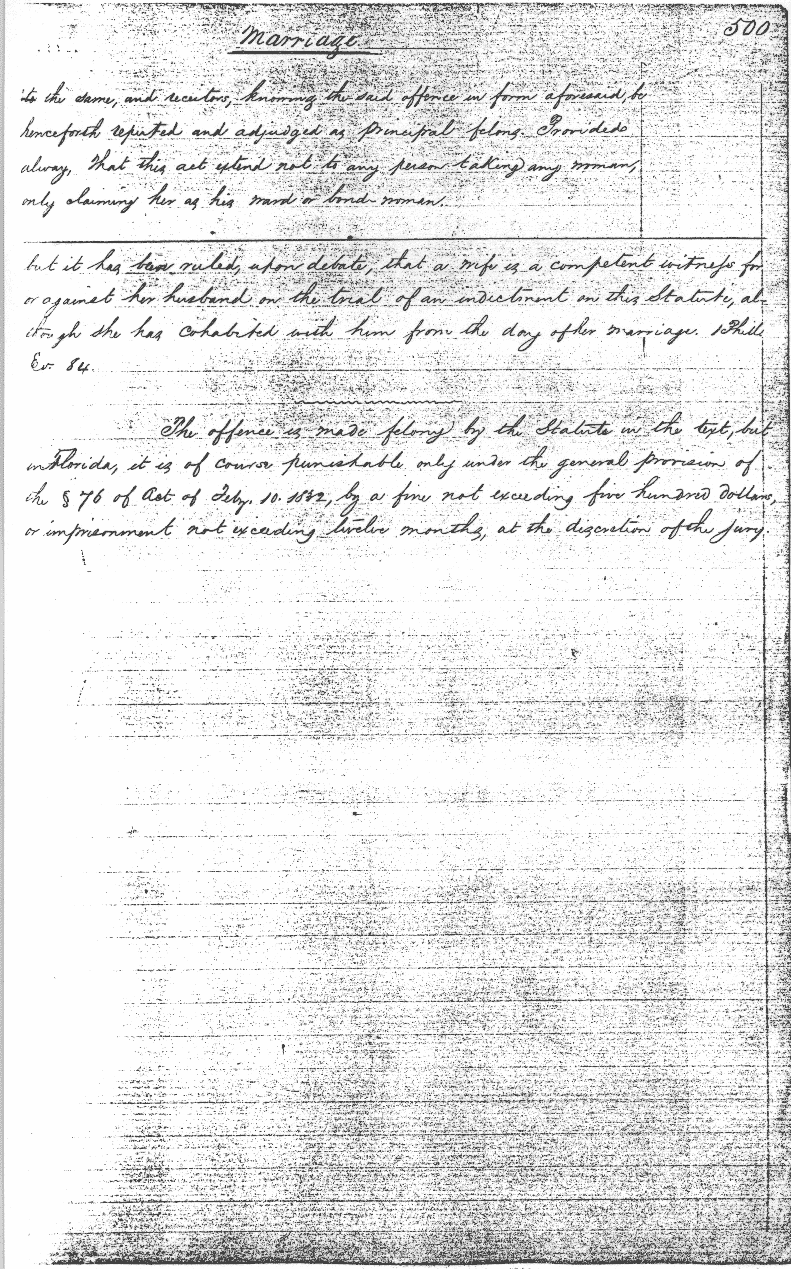 Marriage
500
to the same, and receitors, knowing the said offence in form aforesaid, be
henceforth reputed and adjudged as principal felons. Provided
alway, that this act extend not to any person taking any woman,
only claiming her as his ward or bond-woman.
but it has been ruled, upon debate, that a wife is a competent witness for
or against her husband on the trial of an indictment on this Statute, al-
though she has cohabited with him from the day of her marriage. 1 Phill.
Ev. 84.
The offence is made felony by the Statute in the text, but
in Florida, it is of course punishable only under the general provision of
the § 76 of Act of Feby. 10. 1832, by a fine not exceeding five hundred dollars,
or imprisonment not exceeding twelve months, at the discretion of the Jury.